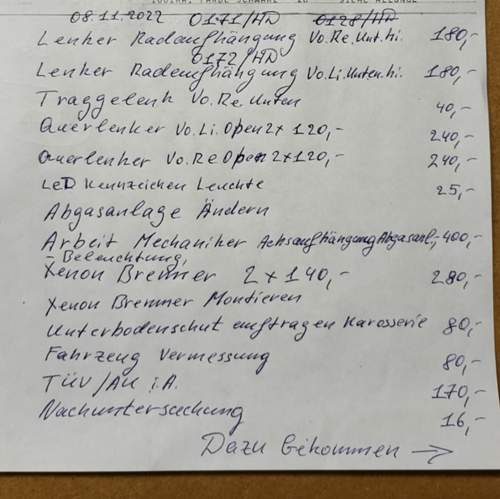 08.11.2022 0171/HD 0128/HD
Lenker Radaufhängung Vo.Re.Unt.hi. 180,-
0172/HD
Lenker Radaufhängung Vo.Li.Unten.hi. 180,-
Traggelenk Vo.Re Unten 40,-
Querlenker Vo.Li.Open 2x 120,- 240,-
Querlenker Vo.Re Open 2x120,- 240,-
LeD Kennzeichen Leuchte 25,-
Abgasanlage Ändern
Arbeit Mechaniker Achsaufhängung Abgasanl,- 400,-
- Beleuchtung,
Xenon Brenner 2x140,- 280,-
Xenon Brenner Montieren
Unterbodenschut auftragen Karosserie 80,-
Fahrzeug Vermessung 80,-
TÜV/AU i.A. 170,-
Nachuntersuchung 16,-
Dazu bekommen →